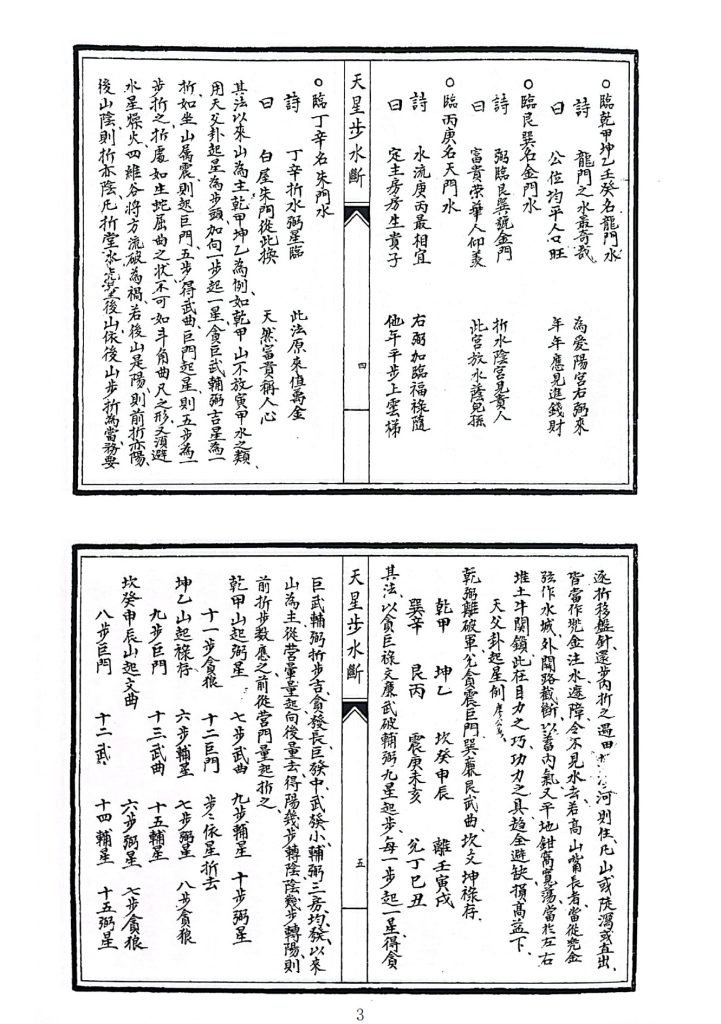 ○臨乾甲坤乙壬癸名龍門水
詩　龍門之水最奇哉　為愛陽宮右弼來
曰　公位均平人口旺　年年應見進錢財
○臨艮巽名金門水
詩　弼臨艮巽號金門　折水陰宮見貴人
曰　富貴榮華人仰羨　此宮放水蔭兒孫
○臨丙庚名天門水
詩　水流庚丙最相宜　右弼加臨福祿隨
曰　定主房房生貴子　他年平步上雲梯
天星步水斷
四
○臨丁辛名朱門水
詩　丁辛折水弼星臨　此法原來值萬金
曰　白屋朱門從此換　天然富貴稱人心
其法以來山為主乾甲坤乙為例如乾甲山不放寅甲水之類、
用天父卦起星為步頭加向一步起一星貪巨武輔弼吉星為一
折如坐山屬震則起巨門五步得武曲巨門起星則五步為一
步折之折處如生蛇屈曲之狀不可如斗角曲尺之形又須避
水星燥火四維谷將方流破為禍若後山是陽則前折亦陽、
後山陰則折亦陰凡折堂水後山依後山步折為當務要
逐折移盤針還步內折之遇田河則住凡山或陡瀉或直出、
皆當作兜金注水遮障令不見水去若高山嘴長者當從兜金
弦作水城外開路截斷以蓄內氣又平地鉗窩寬蕩當於左右
堆土牛關鎖此在目力之巧功力之具趨全避缺損高益下、
天父卦起星例
乾弼離破軍兌貪震巨門巽廉艮武曲坎文坤祿存
乾甲　坤乙　坎癸申辰　離壬寅戌
巽辛　艮丙　震庚未亥　兌丁巳丑
其法以貪巨祿文廉武破輔弼九星起步每一步起一星得貪
天星步水斷
五
巨武輔弼折步吉貪發長巨發中武發小輔弼三房均發以來
山為主從營量起向後量去得陽幾步轉陰陰幾步轉陽則
前折步數應之前從營門量起折之
乾甲山起弼星　七步武曲　九步輔星　十步弼星
十一步貪狼　十二巨門　步依星折去
坤乙山起祿存　六步輔星　七步弼星　八步貪狼
九步巨門　十三武曲　十五輔星
坎癸申辰山起文曲　六步弼星　七步貪狼
八步巨門　十二武　十四輔星　十五弼星
3